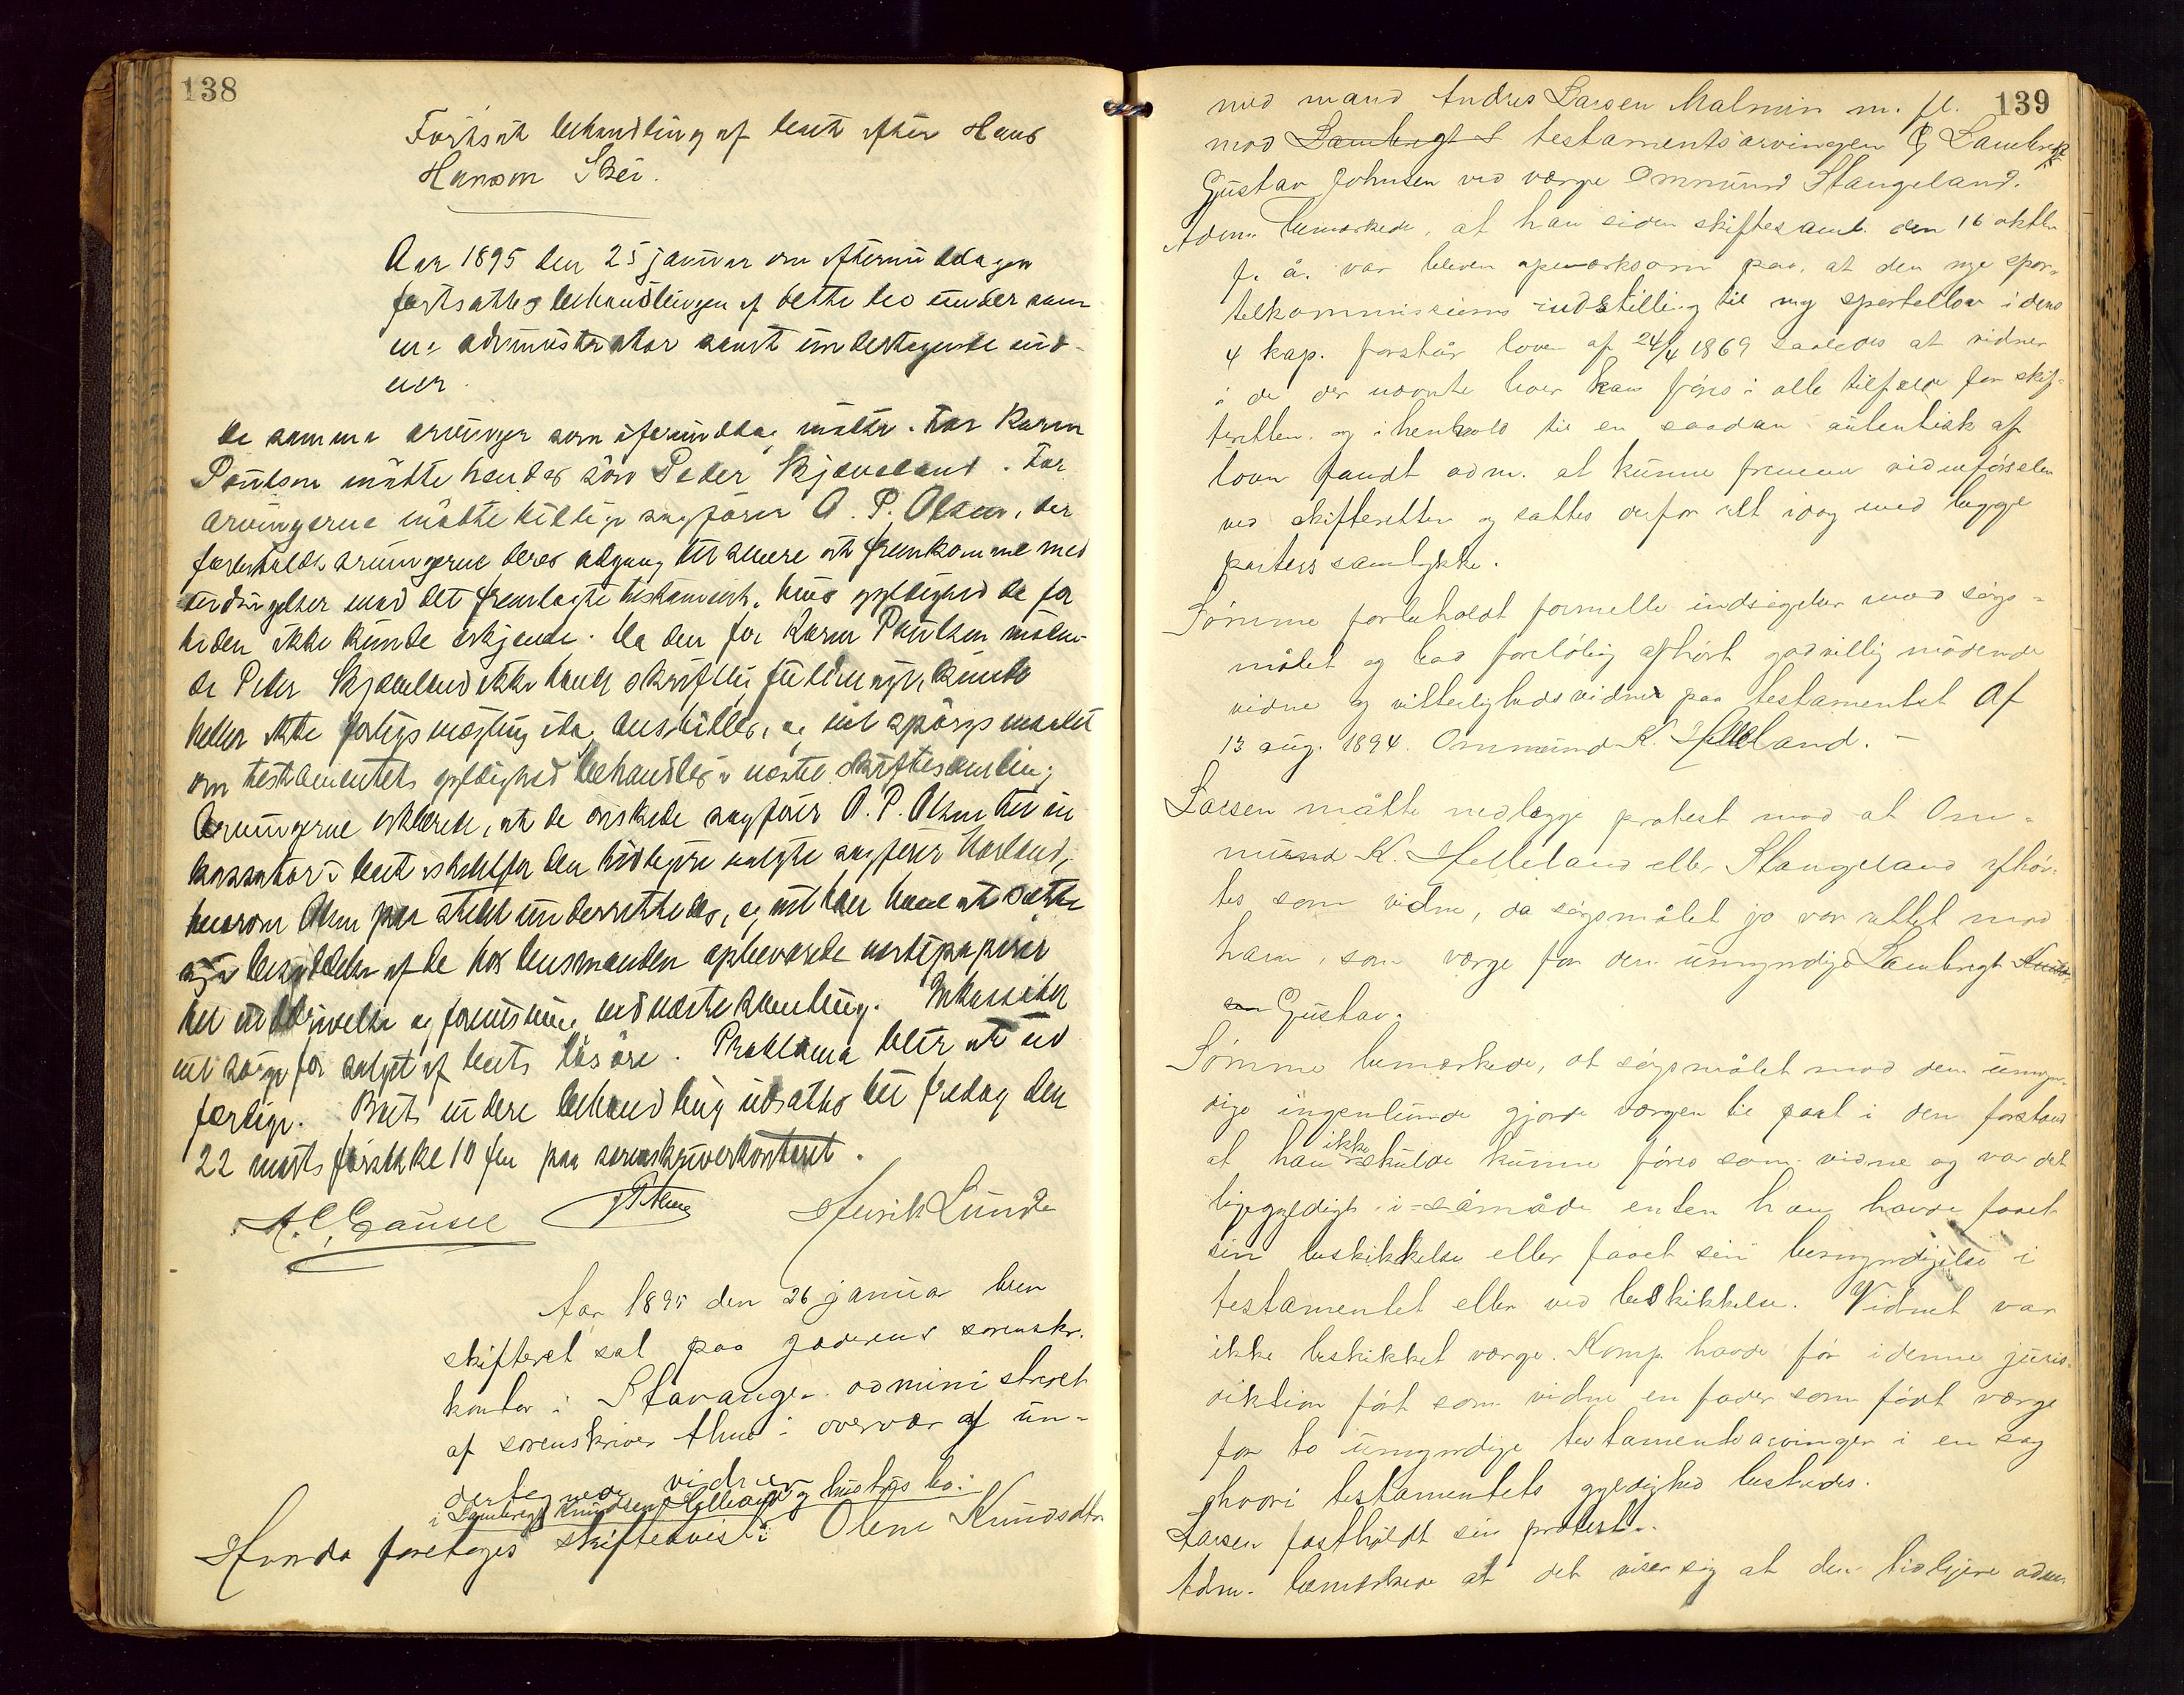 138
Fortsat behandling af boet efter Hans
Hanson Skei.
Aar 1895 den 25 januar om eftermiddagen
fortsattes behandlingen af dette bo under sam
me administrator samt undertegnede vid
ner.
De samme arvinger som iformiddag mötte. For Karen
Poulsen mötte hendes sön Peder Skjæveland. For
arvingerne mötte tillige sagförer O. P. Olsen, der
forbeholdt arvingerne deres adgang til senere at fremkomme med
indsigelser mod det fremlagte testament, hvis gyldighed de for
tiden ikke kunde erkjende. Da den for Karen Paulsen möden-
de Peder Skjæveland ikke havde skriftlig fuldmagt, kunde
heller ikke forligsmægling idag anstilles, og vil spörgsmaalet
om testamentets gyldighed behandles i næste skiftesamling
Arvingerne erklærede, at de önskede sagförer O. P. Olsen til in
kassator i boet istedetfor den tidligere valgte sagförer Haaland,
hvorom Olsen paa stedet underrettedes, og vil han have at sætte
sig i besiddelse af de hos lensmanden opbevarede værdipapirer
til inddrivelse og forvisning ved næste samling. Inkassator
vil sörge for salget af boets lösöre. Proklama blir at ud
færdige. Boets videre behandling udsattes til fredag den
22 marts förstk. kl 10 fm paa sorenskriverkontoret.
A. C. Gausel Henrik Lunde
Aar 1895 den 26 januar blev
skifteret sat paa Jæderens sorenskr.
kontor i Stavanger administreret
af sorenskriver Thue i overvær af un-
dertegnede vidner
i Lambregt Knudsen Helleland og hustrus bo:
Hvorda foretoges skiftetvist: Olene Knudsdtr
139
med mand Andres Larsen Malmin m. fl.
mod Lambregt S testamentsarvingen G Lambregt
Gustav Johnsen ved værge Ommund Stangeland.
Adm. bemærkede, at han siden skiftesaml. den 16 oktbr
f. å. var bleven opmærksom paa, at den nye spor-
telkommissions indstilling til ny sportellov i dens
4 kap. forstår loven af 24/4 1869 saaledes at vidner
i de der nævnte boer kan föres i alle tilfælde for skif-
teretten og i henhold til en saadan autentisk af
loven fandt adm. at kunne fremme vidneförselen
ved skifteretten og sattes derfor ret idag med begge
parters samtykke.
Sömme forbeholdt formelle indsigelser mod sögs-
målet og bad foreløbig afhört godvillig mödende
vidne og vitterlighedsvidner paa testamentet af
13 aug. 1894. Ommund K. Helleland. –
Larsen måtte nedlægge protest mod at Om-
mund K. Helleland eller Stangeland afhör-
tes som vidne, da sögsmålet jo var rettet mod
ham, som værge for den umyndige Lambregt Knud-
sen Gustav.
Sömme bemærkede, at sögsmålet mod den umyn-
dige ingenlunde gjorde værgen til part i den forstand
at han ikke skulde kunne föres som vidne og var det
ligegyldigt i så måde enten han havde faaet
sin beskikkelse eller faaet sin bemyndigelse i
testamentet eller ved beskikkelse. Vidnet var
ikke beskikket værge. Komp. havde för i denne juris-
diktion fört som vidne en fader som födt værge
for to umyndige testamentsarvinger i en sag
hvori testamentets gyldighed bestredes.
Larsen fastholdt sin protest.
Adm. bemærkede at det viser sig at den tidligere adm.